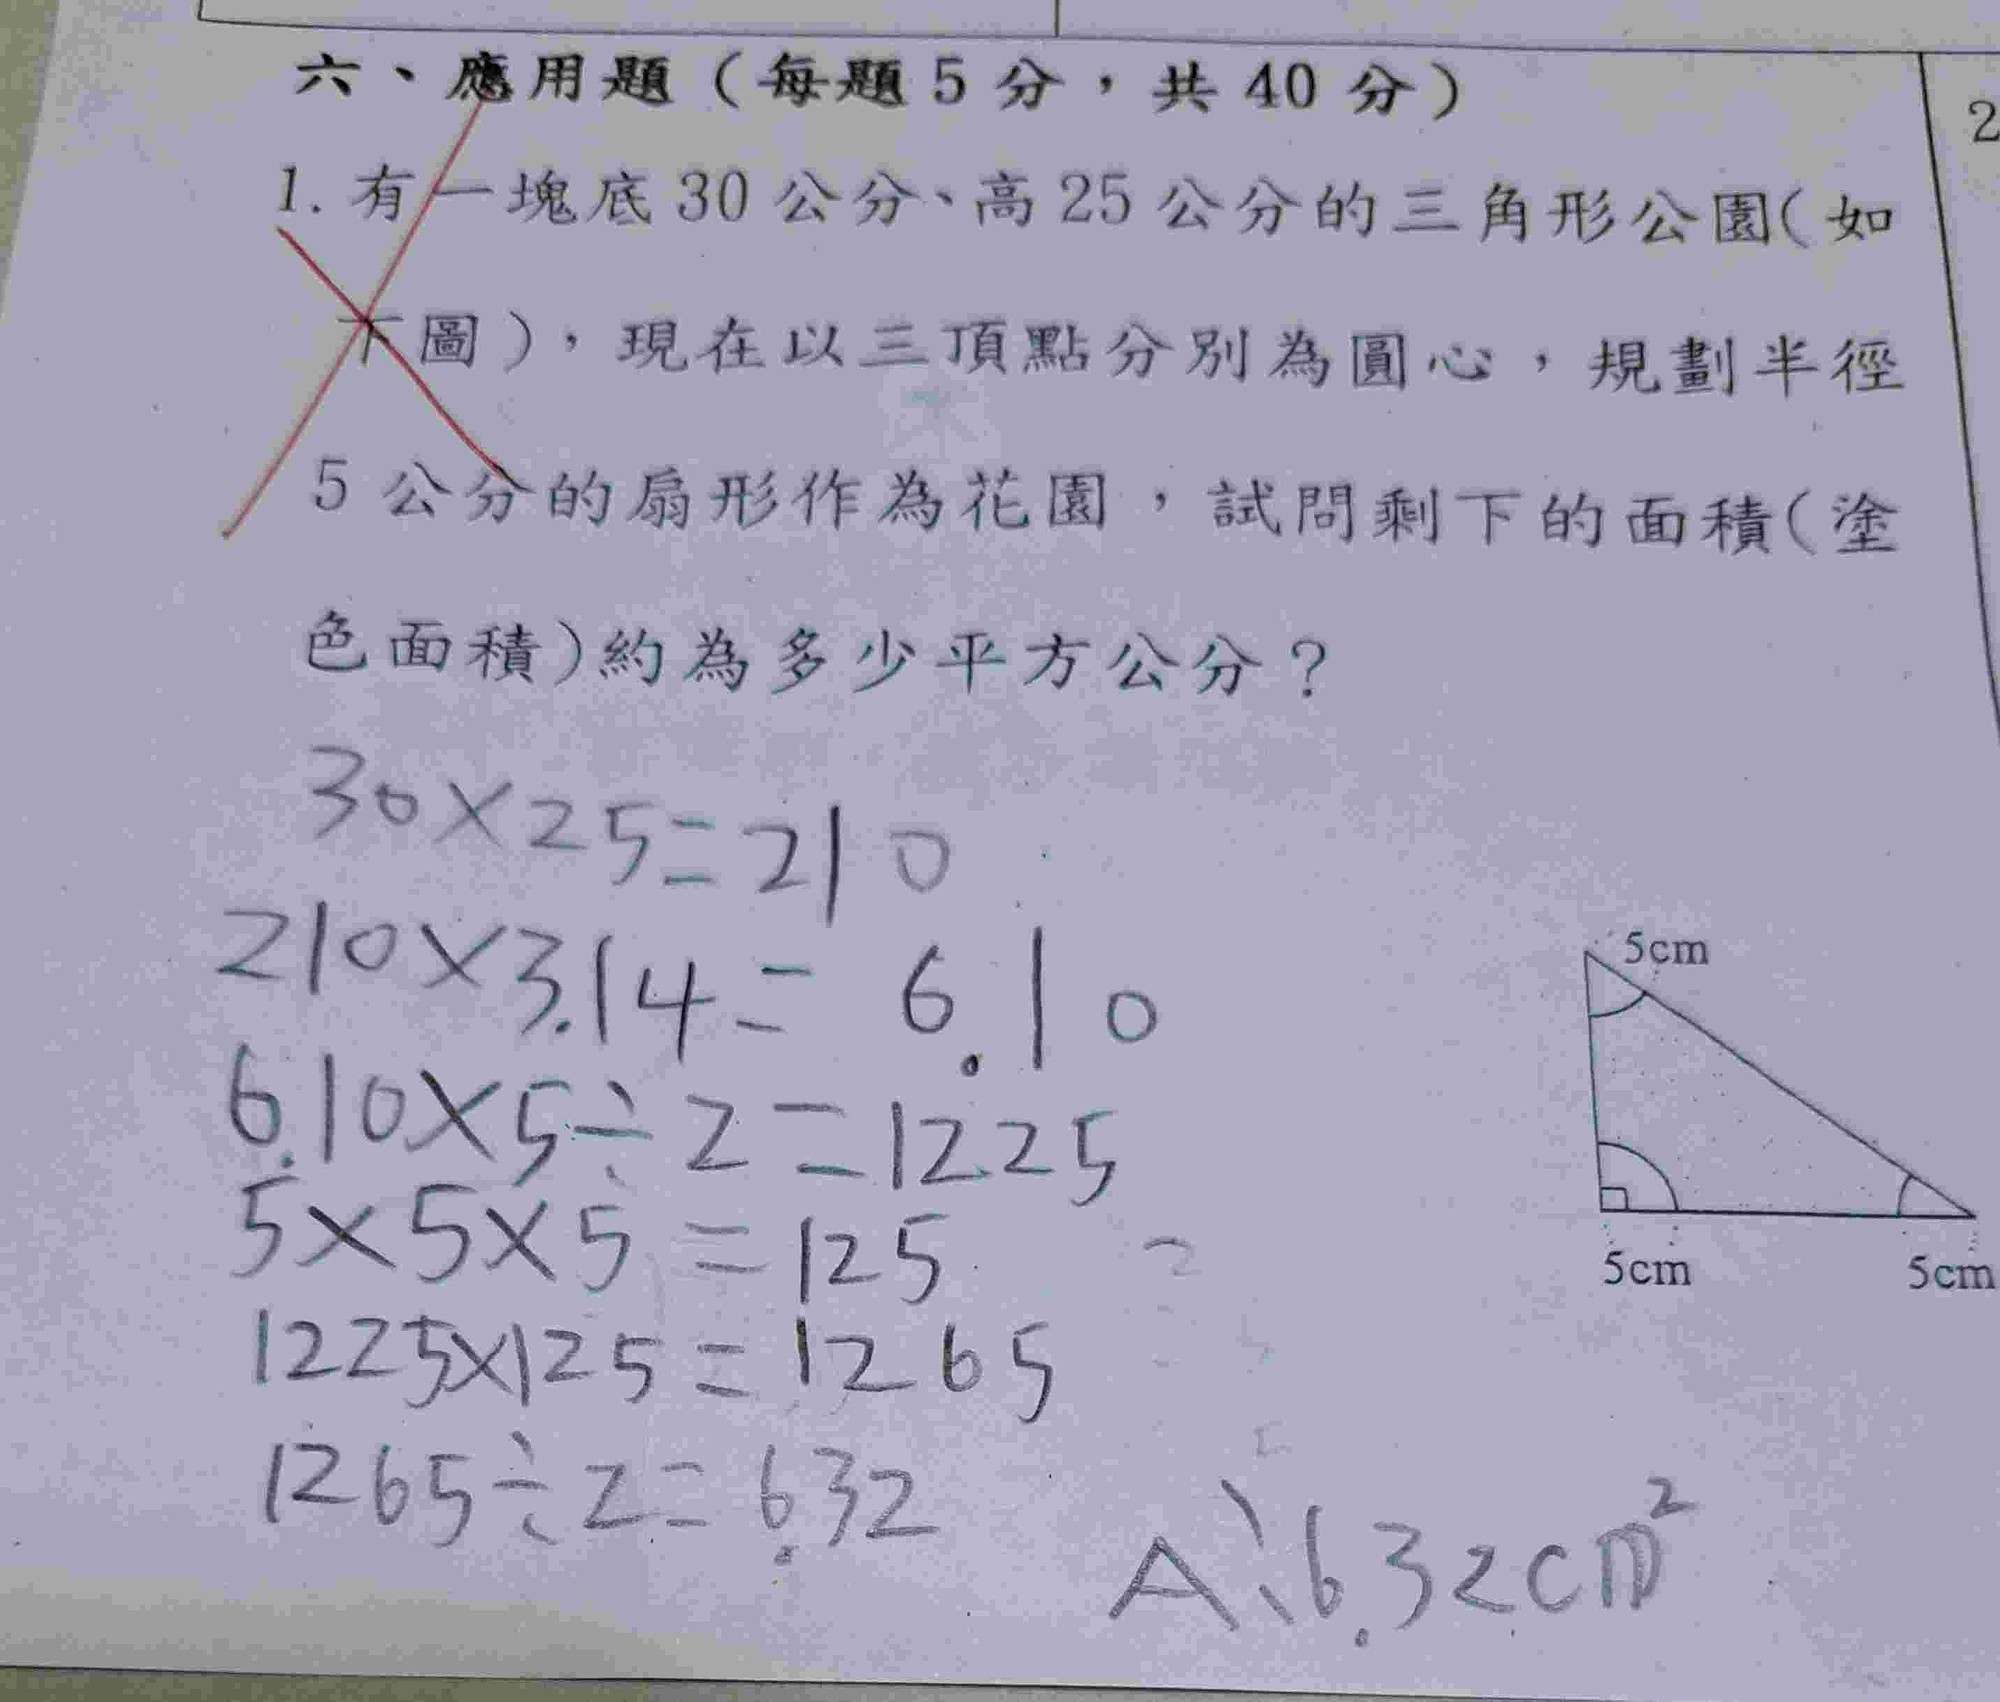 六、應用題（每題5分，共40分）
2
1. 有一塊底30公分、高25公分的三角形公園(如
下圖)，現在以三頂點分別為圓心，規劃半徑
5公分的扇形作為花園，試問剩下的面積(塗
色面積)約為多少平方公分？
30×25=210
210×3.14=6.10
6.10×5÷2=1225
5×5×5=125
1225×125=1265
1265÷2=6.32
A:6.32cm²
5cm
5cm
5cm